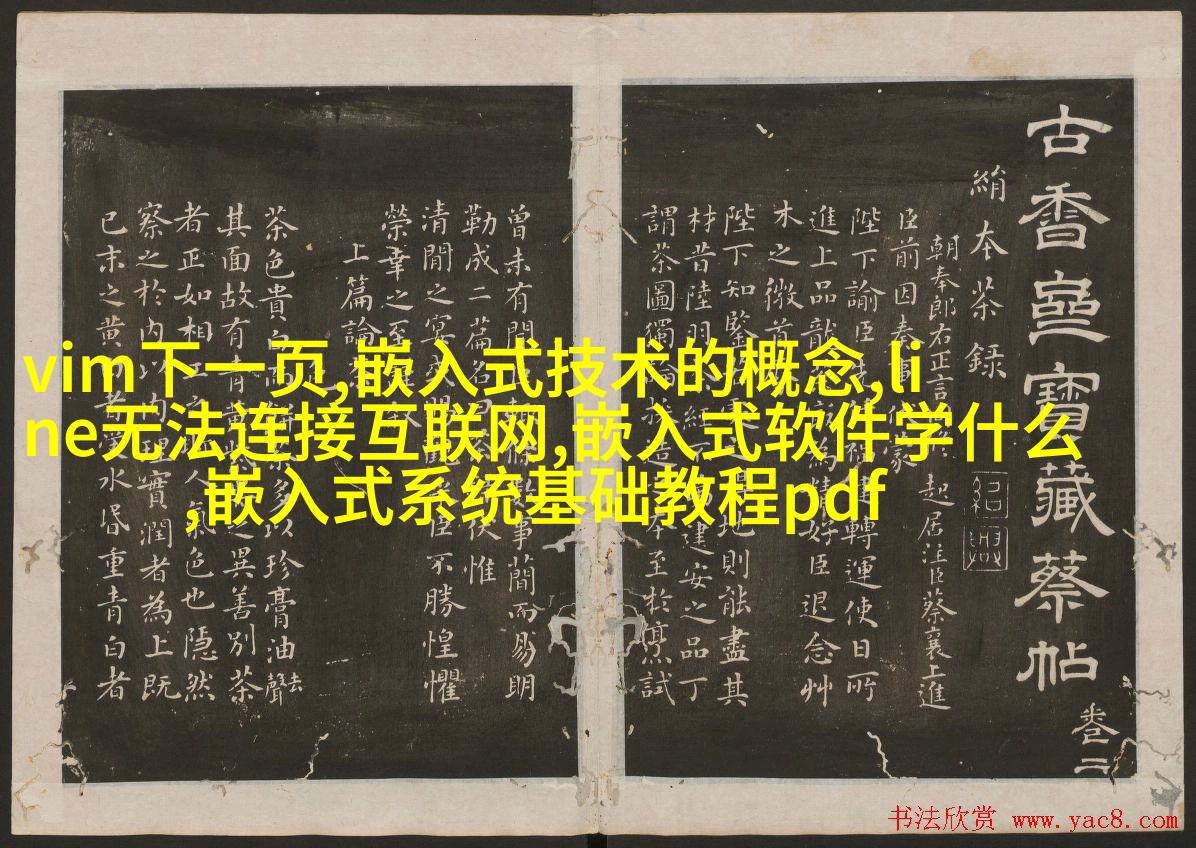 古香齋寶藏蔡帖
卷二
絹本茶錄
紹興
朝奉郎右正言 起居注臣蔡襄上進
臣前因奏事伏蒙
陛下諭臣 建轉運使日所
進上品龍茶 為精好臣退念艸
木之微首
陛下知鑒 地則能盡其
材昔陸羽茶經 建安之品丁
謂茶圖獨論採造之本至於烹試
曾未有聞臣輒條數事簡而易明
勒成二篇名曰茶 伏惟
清閒之宴或 臣不勝惶懼
榮幸之至
上篇論茶
茶色貴白而 茶多以珍膏油去聲
其面故有青黃 之異善別茶
者正如相工之 人氣色也隱然
察之於內以肉理實潤者為上既
已末之黃白者受水昏重青白者
vim下一页,嵌入式技术的概念,li
ne无法连接互联网,嵌入式软件学什么
,嵌入式系统基础教程pdf
书法欣赏 www.yac8.com